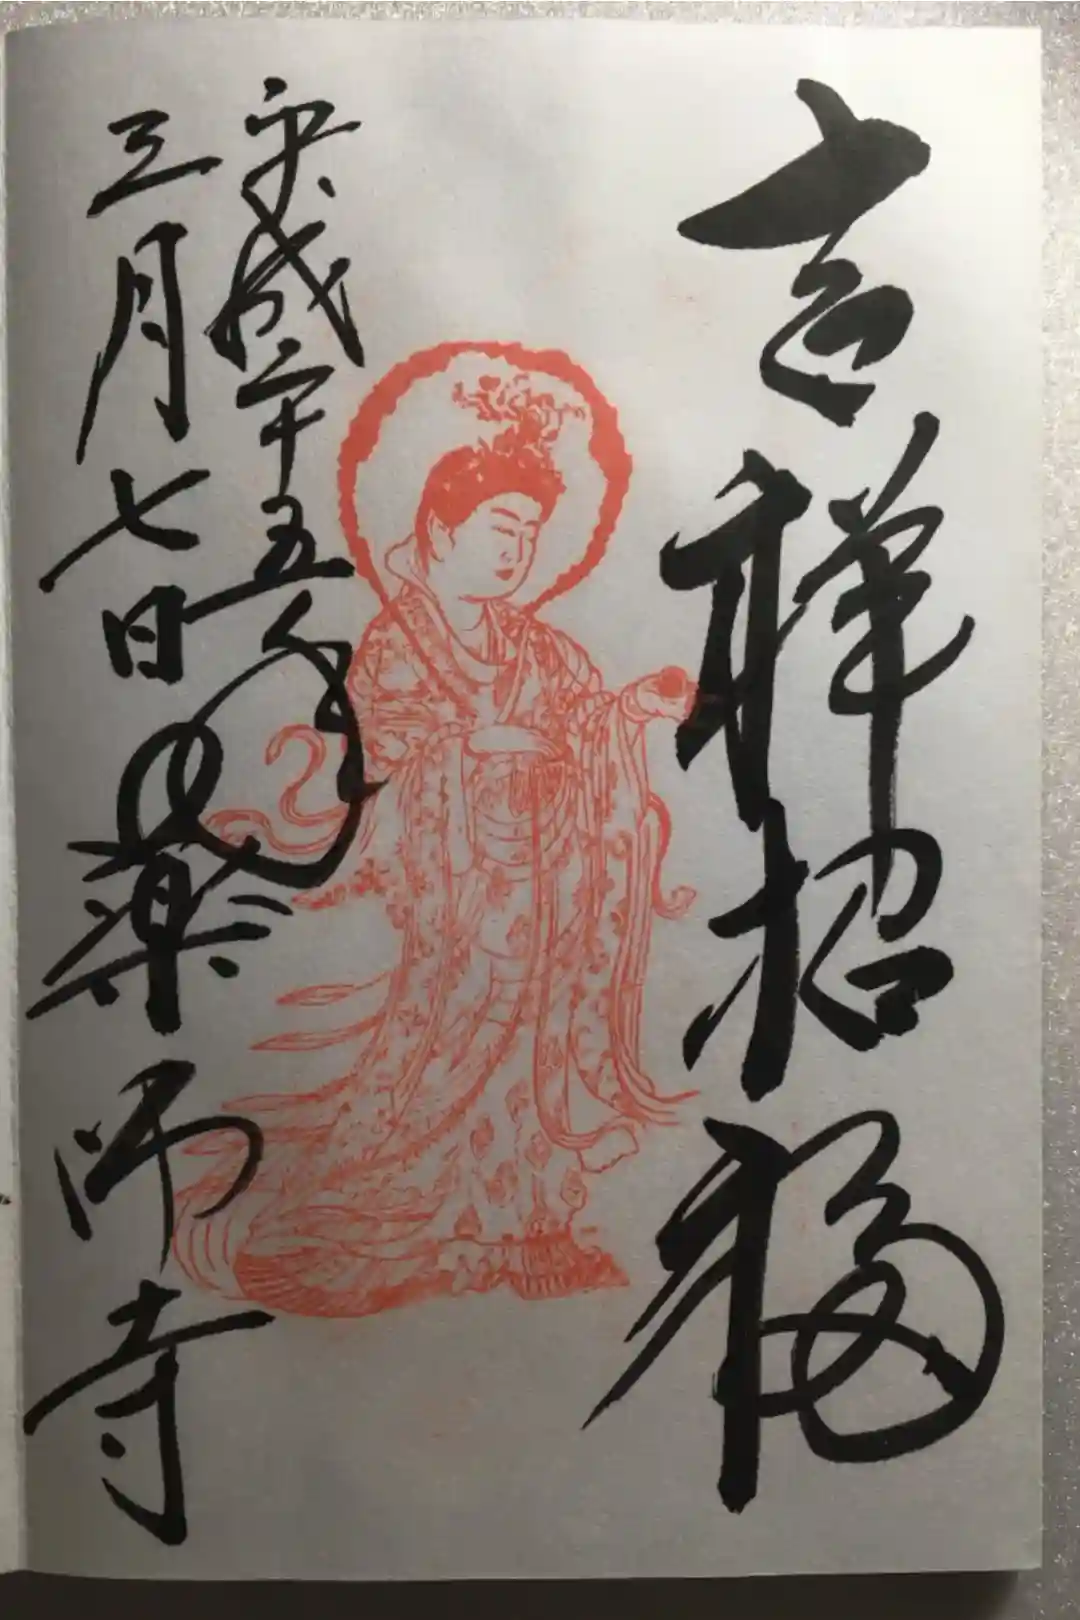 吉祥招福
平成二十五年
三月七日 薬師寺